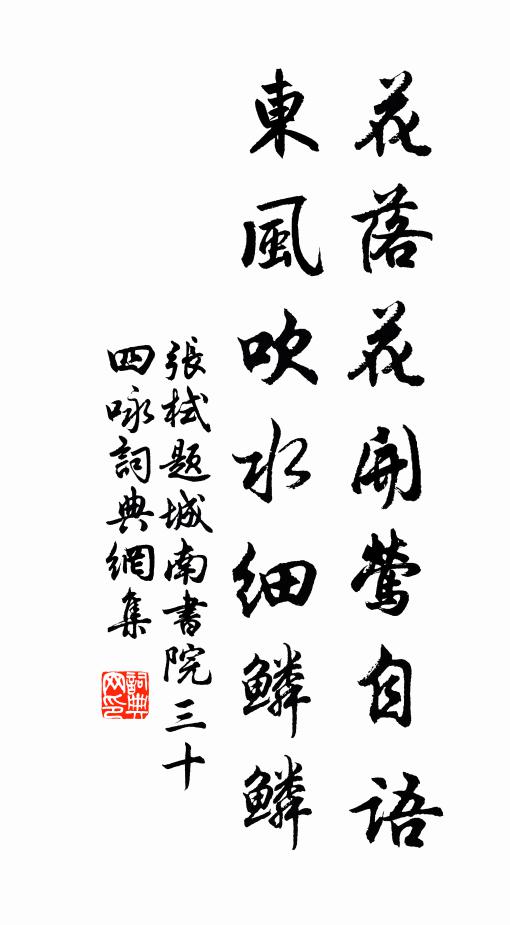 花落花開鶯自語
東風吹水細鱗鱗
張栻題城南書院三十
四咏詞典網集
詞典
网印